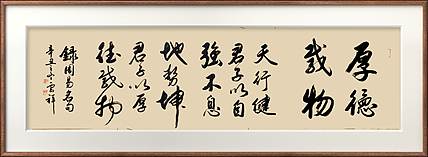 厚德
載物
天行健
君子以自
強不息
地勢坤
君子以厚
德載物
錄周易名句
辛丑